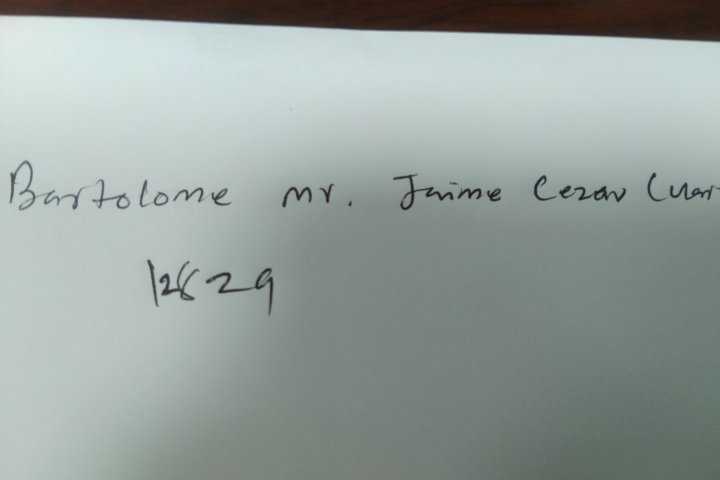 Bartolome Mr. Jaime Cezar
12829